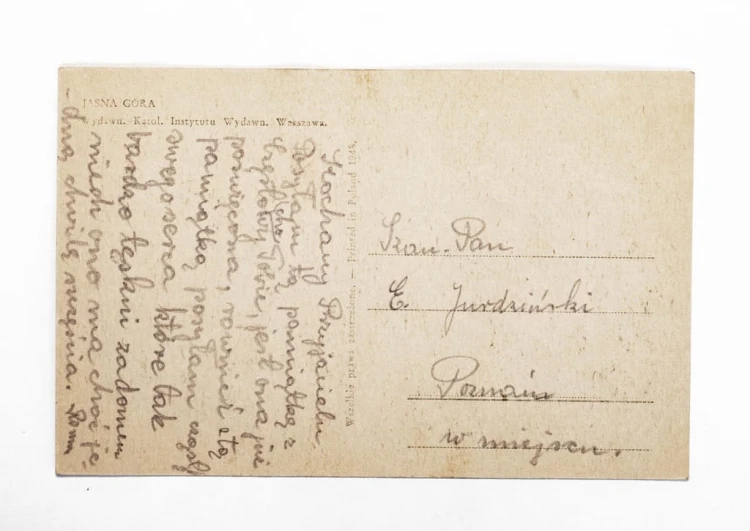 JASNA GÓRA
Wydawn. Katol. Instytutu Wydawn. Warszawa.
Wszelkie prawa zastrzeżone. — Printed in Poland 1948.
Kochany Przyjacielu.
Posyłam tą pamiątkę z
Częstochowy Tobie, jest ona już
poświęcona, również i tą
pamiątką posyłam część
swego serca które tak
bardzo tęskni za domem
niech ono ma choć je-
-dną chwilę szczęścia.
Szan. Pan
E. Jurdziński
Poznań
w miejscu.